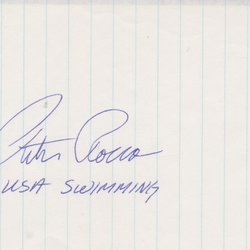 Peter Rocca
USA SWIMMING